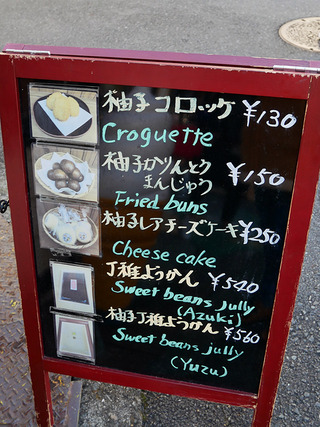 柚子コロッケ ¥130
Croguette
柚子かりんとう
まんじゅう ¥150
Fried buns
柚子レアチーズケーキ ¥250
Cheese cake
丁稚ようかん ¥540
Sweet beans jully
(Azuki)
柚子丁稚ようかん ¥560
Sweet beans jully
(Yuzu)